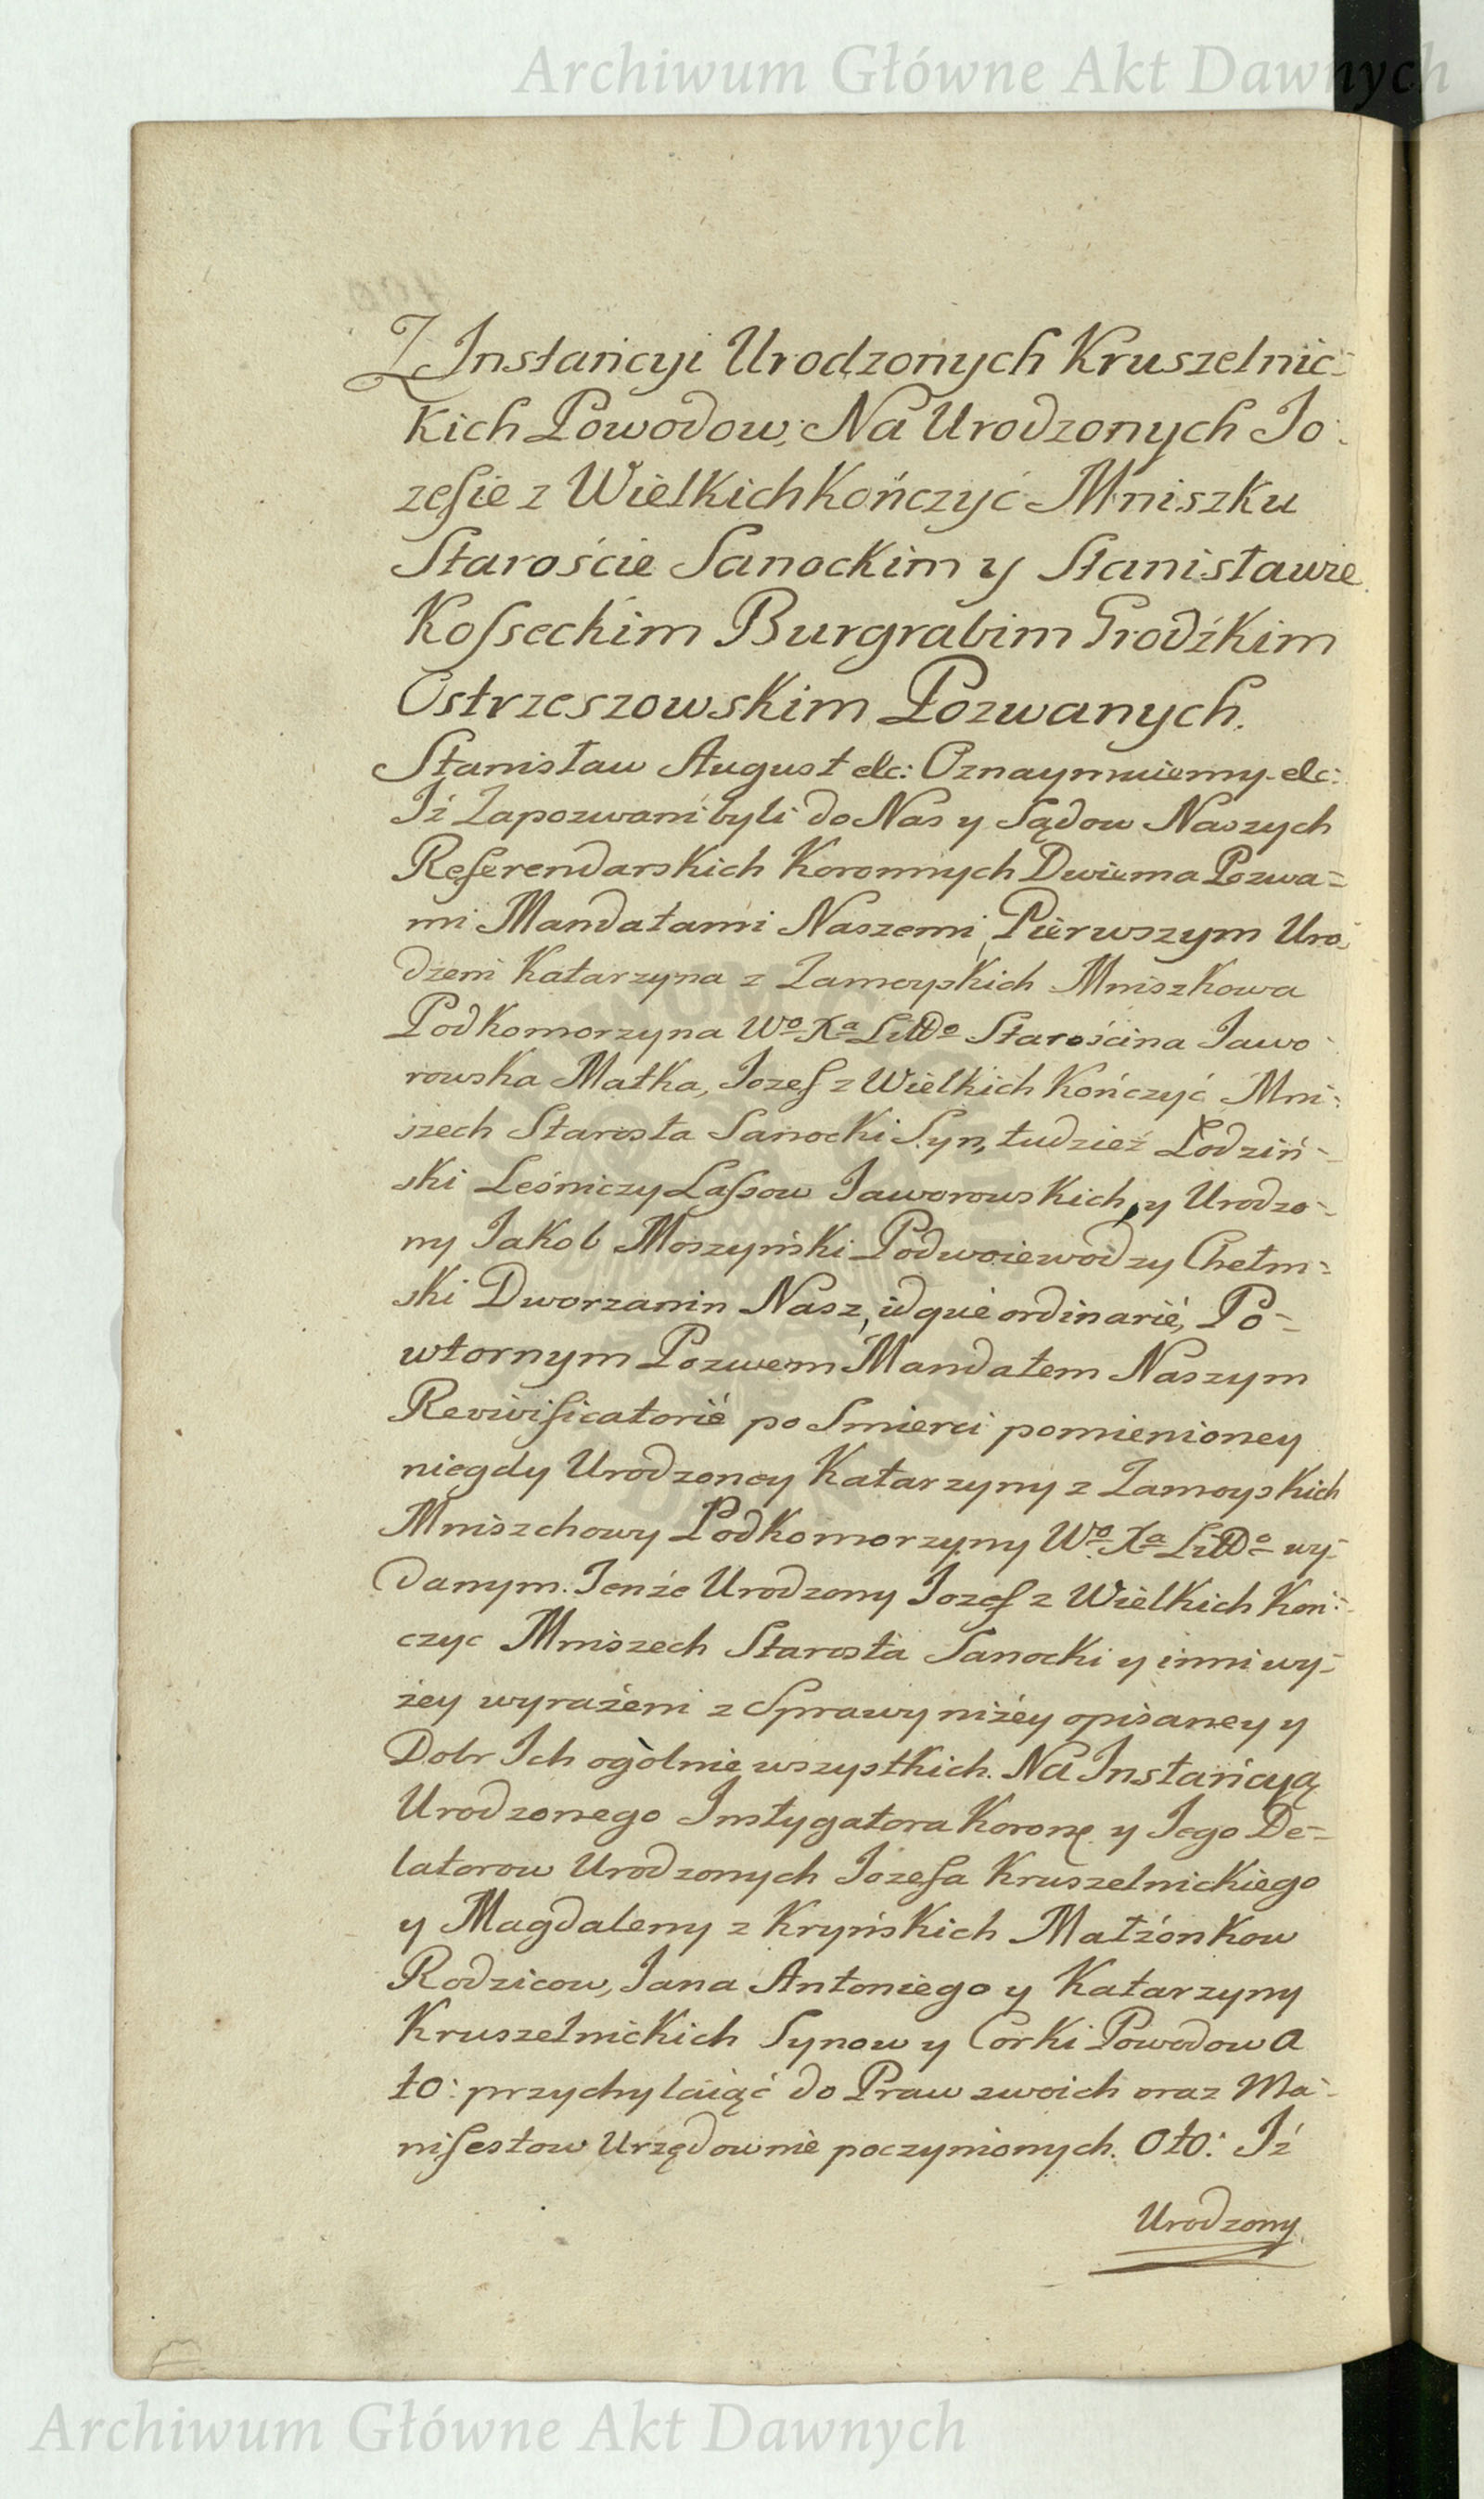 Archiwum Główne Akt Dawnych
Z Instańcyi Urodzonych Kruszelnic-
kich Powodow, Na Urodzonych Jo-
zefie z Wielkich Kończyć Mniszku
Staroście Sanockim y Stanisławie
Kosseckim Burgrabim Grodźkim
Ostrzeszowskim Pozwanych.
Stanisław August etc: Oznaymuiemy etc:
Iż Zapozwani byli do Nas y Sądow Naszych
Referendarskich Koronnych Dwiema Pozwa=
mi Mandatami Naszemi, Pierwszym Uro-
dzeni Katarzyna z Zamoyskich Mniszkowa
Podkomorzyna Wo Xa Litto Starościna Jawo-
rowska Matka, Jozef z Wielkich Kończyć Mni-
szech Starosta Sanocki Syn, tudzież Łodziń-
ski Leśniczy Lassow Jaworowskich, y Urodzo-
ny Jakob Moszyński Podwoiewodzy Chełm-
ski Dworzanin Nasz, idque ordinarié, Po-
wtornym Pozwem Mandatem Naszym
Revivificatorié po Smierci pomienioney
niegdy Urodzoney Katarzyny z Zamoyskich
Mniszchowy Podkomorzyny Wo Xa Litto wy-
danym. Tenże Urodzony Jozef z Wielkich Koń-
czyc Mniszech Starosta Sanocki y inni wy-
żey wyrażeni z Sprawy niżey opisaney y
Dobr Ich ogòlnie wszystkich. Na Instańcyą
Urodzonego Instygatora Koronǫ y Jego De-
latorow Urodzonych Jozefa Kruszelnickiego
y Magdaleny z Kryńskich Małżonkow
Rodzicow, Jana Antoniego y Katarzyny
Kruszelnickich Synow y Corki Powodow A
to: przychylaiąć do Praw swoich oraz Ma-
nifestow Urzędownie poczynionych. Oto: Iż
Urodzony
Archiwum Główne Akt Dawnych